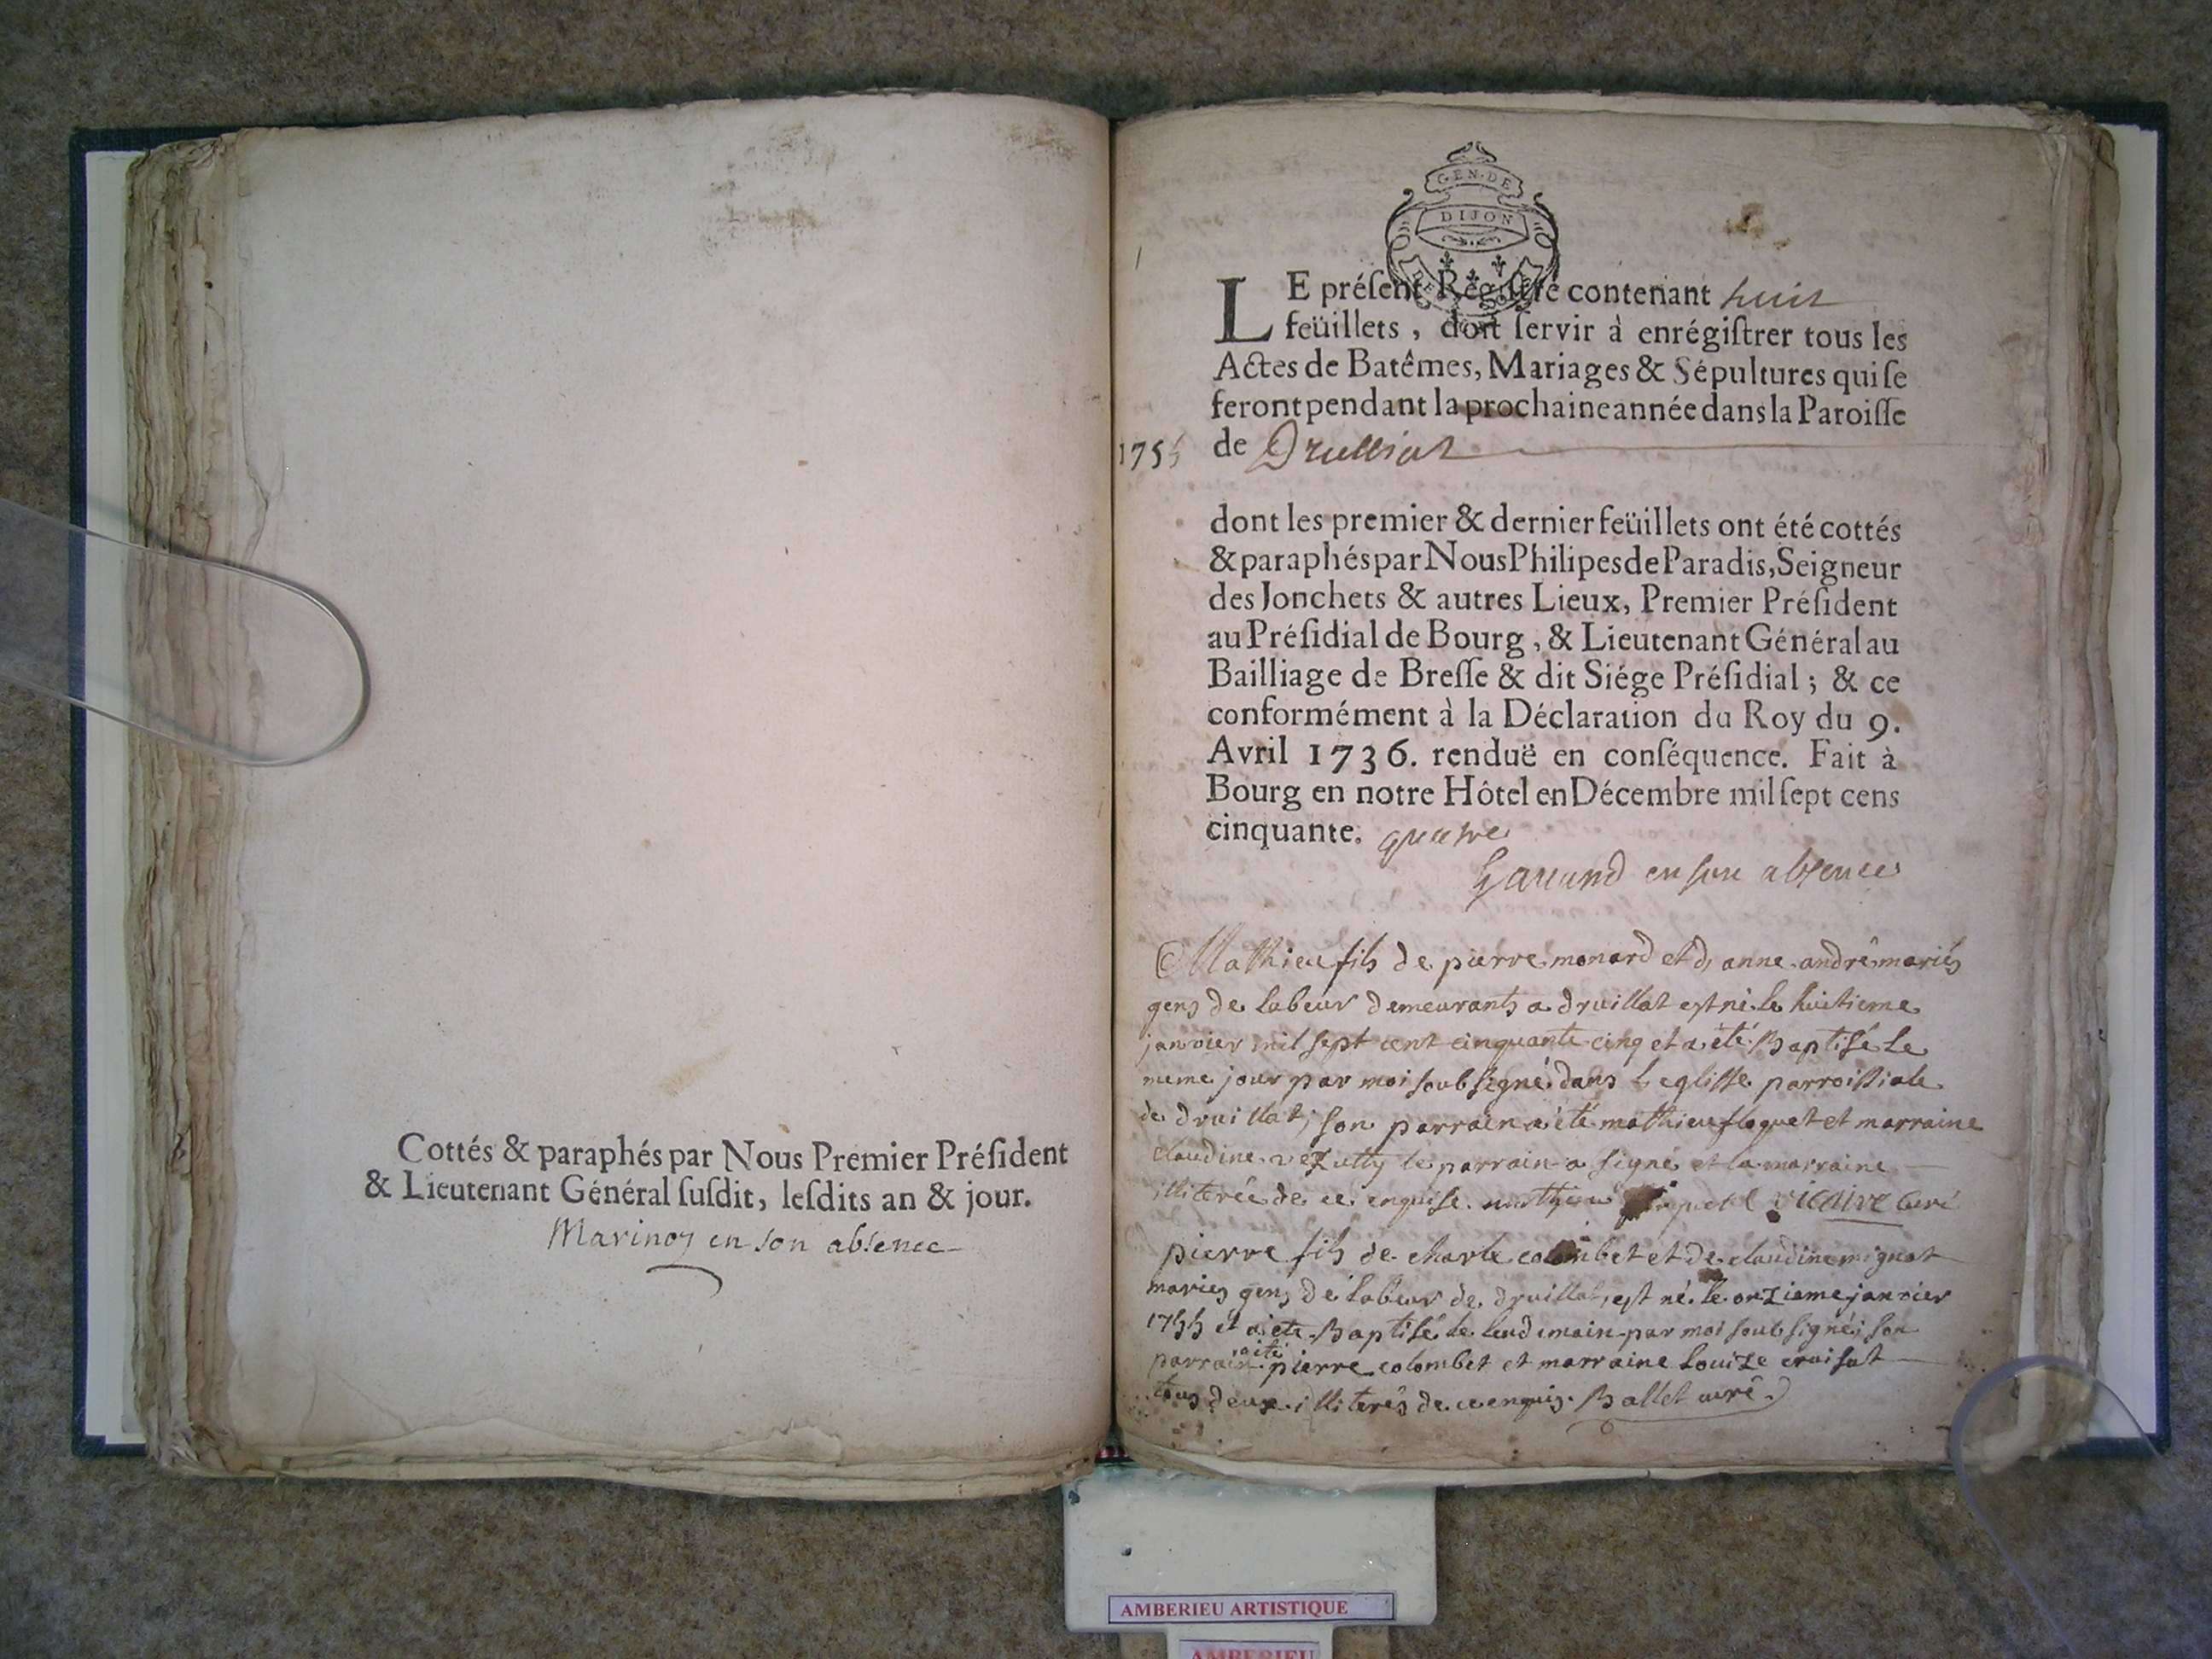 Cottés & paraphés par Nous Premier Préſident
& Lieutenant Général ſuſdit, leſdits an & jour.
Marinoz en son absence
GEN·DE
DIJON
1755
LE préſent Regiſtre contenant huit
feüillets, doit ſervir à enrégiſtrer tous les
Actes de Batêmes, Mariages & Sépultures qui ſe
feront pendant la prochaine année dans la Paroiſſe
de Druilliat
dont les premier & dernier feüillets ont été cottés
& paraphés par Nous Philipes de Paradis, Seigneur
des Jonchets & autres Lieux, Premier Préſident
au Préſidial de Bourg, & Lieutenant Général au
Bailliage de Breſſe & dit Siége Préſidial; & ce
conformément à la Déclaration du Roy du 9.
Avril 1736. renduë en conſéquence. Fait à
Bourg en notre Hôtel en Décembre mil ſept cens
cinquante. quatre
en son absence
Mathieu fils de pierre monard et d anne andré mariés
gens de labeur demeurants a druillat est né le huitieme
janvier mil sept cent cinquante cinq et a été Baptisé le
meme jour par moi soubsigné dans l eglisse parroissiale
de druillat; son parrain a été mathieu floquet et marraine
claudine le parrain a signé et la marraine
illiterée de ce enquise. mathieu curé
pierre fils de charle colombet et de claudine mignot
mariés gens de labeur de druillat, est né le onzieme janvier
1755 et a ete Baptisé le lendemain par moi soubsigné; son
parrain a été pierre colombet et marraine Louize croisat
tous deux illiterés de ce enquis. Ballet curé
AMBERIEU ARTISTIQUE
AMBERIEU